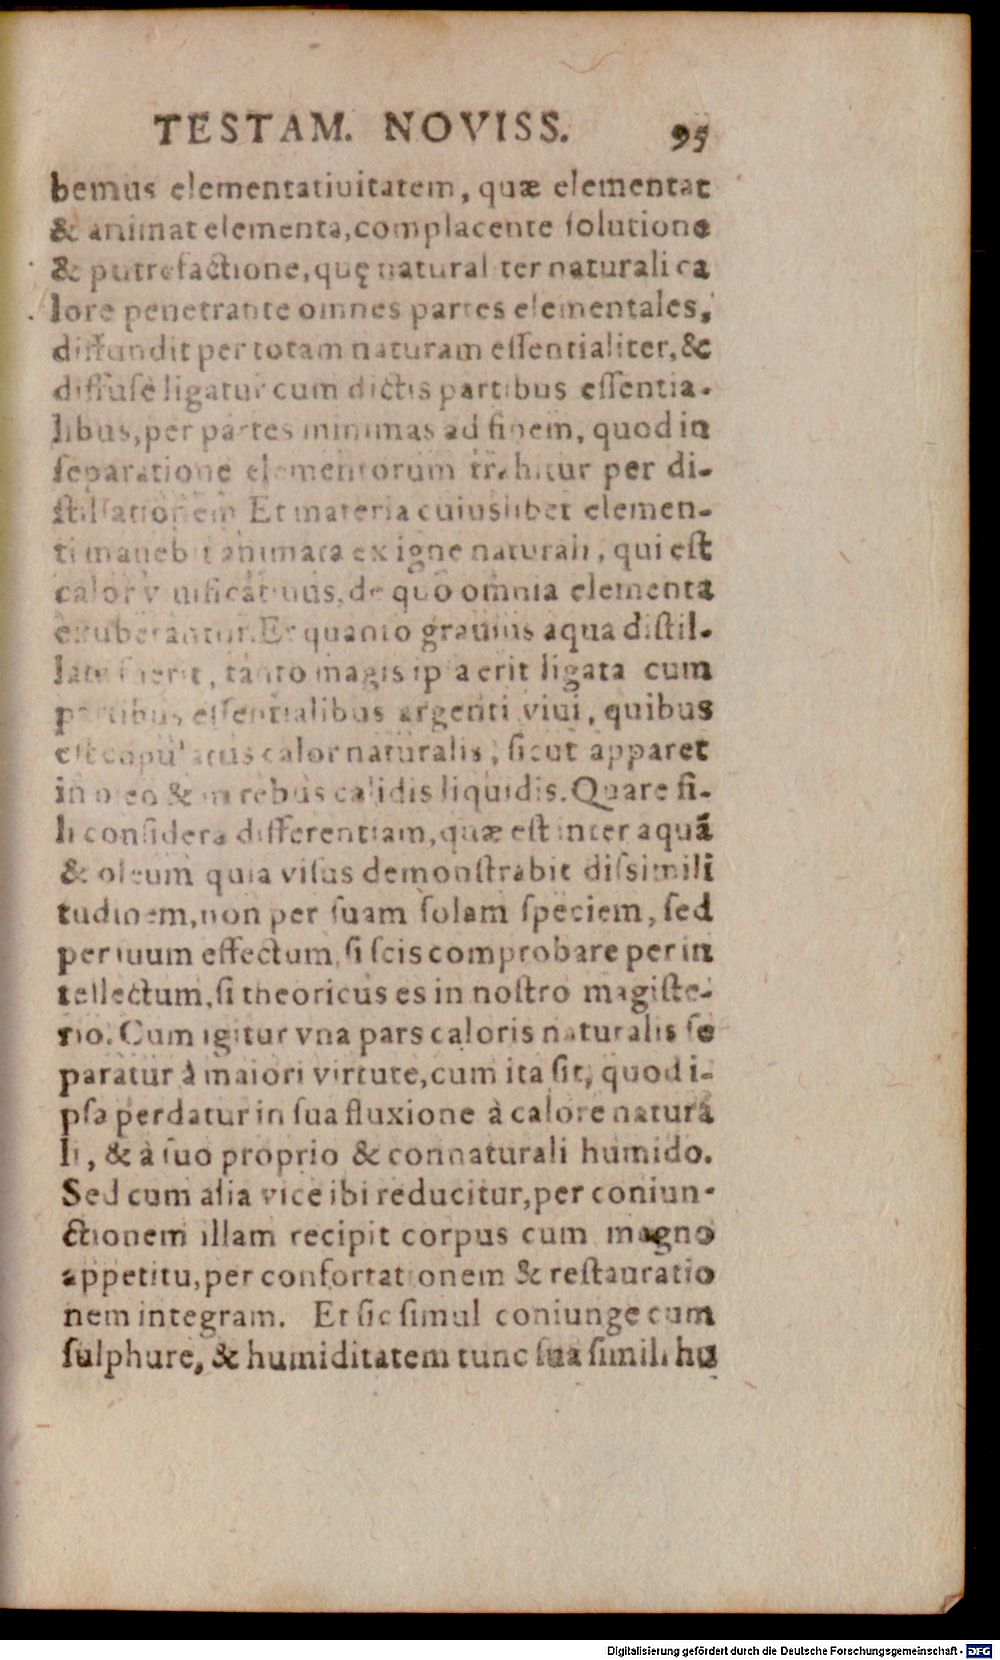 TESTAM. NOVISS. 95
bemus elementatiuitatem, quæ elementat
& animat elementa, complacente ſolutione
& putrefactione, quę natural ter naturali ca
lore penetrante omnes partes elementales,
diffundit per totam naturam eſſentialiter, &
diffuſè ligatur cum dictis partibus eſſentia-
libus, per partes minimas ad finem, quod in
ſeparatione elementorum trahitur per di-
ſtillationem Et materia cuiuslibet elemen-
ti manebit animata ex igne naturali, qui eſt
calor viuificatiuus, de quo omnia elementa
exuberantur. Et quanto grauius aqua diſtil-
lata fuerit, tanto magis ipſa erit ligata cum
partibus eſſentialibus argenti viui, quibus
eſt copulatus calor naturalis, ſicut apparet
in oleo & in rebus calidis liquidis. Quare fi-
li conſidera differentiam, quæ eſt inter aquã
& oleum quia viſus demonſtrabit diſsimili
tudinem, non per ſuam ſolam ſpeciem, ſed
per ſuum effectum, ſi ſcis comprobare per in
tellectum, ſi theoricus es in noſtro magiſte-
rio. Cum igitur vna pars caloris naturalis ſe
paratur à maiori virtute, cum ita ſit, quod i-
pſa perdatur in ſua fluxione à calore natura
li, & à ſuo proprio & connaturali humido.
Sed cum alia vice ibi reducitur, per coniun-
ctionem illam recipit corpus cum magno
appetitu, per confortationem & reſtauratio
nem integram. Et ſic ſimul coniunge cum
ſulphure, & humiditatem tunc ſua ſimili hu
Digitalisierung gefördert durch die Deutsche Forschungsgemeinschaft - DFG